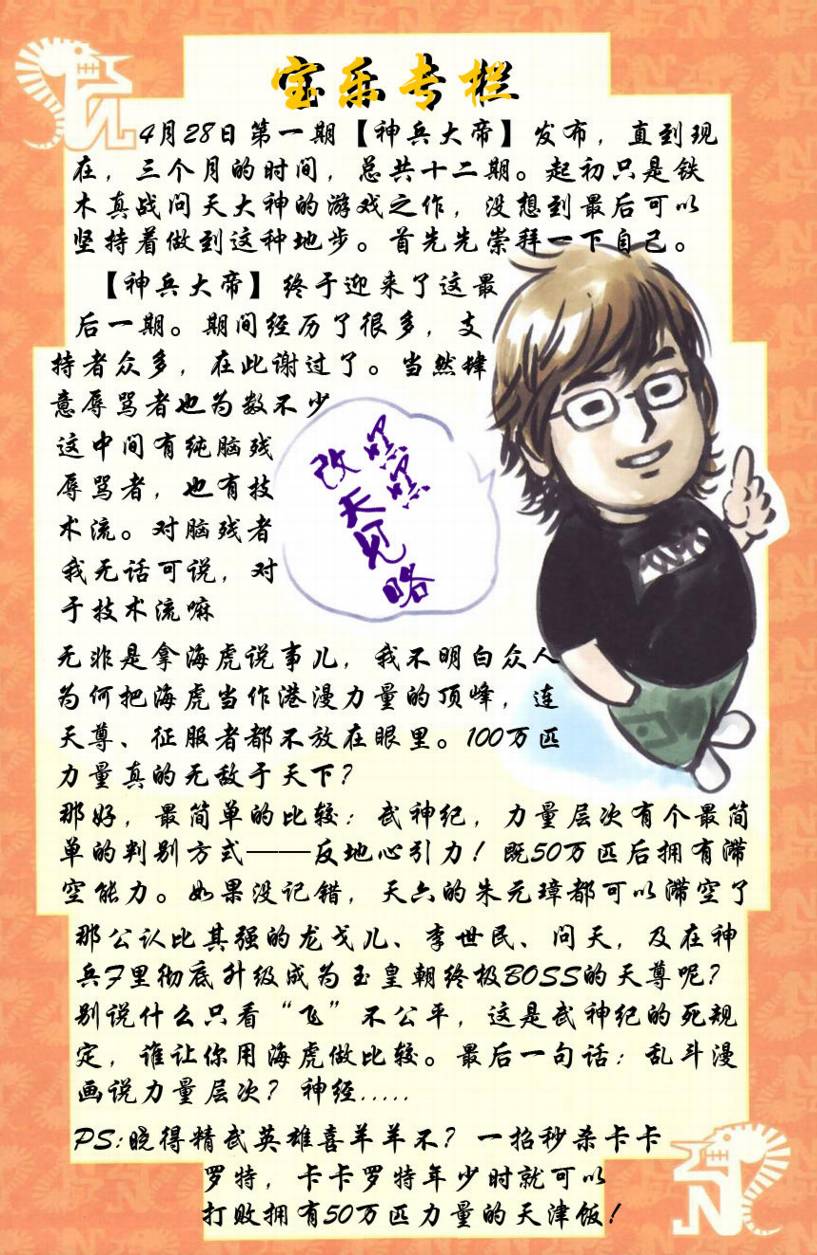 宝乐专栏
4月28日第一期【神兵大帝】发布，直到现
在，三个月的时间，总共十二期。起初只是铁
木真战问天大神的游戏之作，没想到最后可以
坚持着做到这种地步。首先先崇拜一下自己。
【神兵大帝】终于迎来了这最
后一期。期间经历了很多，支
持者众多，在此谢过了。当然肆
意辱骂者也为数不少
这中间有纯脑残
辱骂者，也有技
术流。对脑残者
我无话可说，对
于技术流嘛
嘿嘿
改天见
咯
无非是拿海虎说事儿，我不明白众人
为何把海虎当作港漫力量的顶峰，连
天尊、征服者都不放在眼里。100万匹
力量真的无敌于天下？
那好，最简单的比较：武神纪，力量层次有个最简
单的判别方式——反地心引力！既50万匹后拥有滞
空能力。如果没记错，天六的朱元璋都可以滞空了
那公认比其强的龙戈儿、李世民、问天，及在神
兵F里彻底升级成为玉皇朝终极BOSS的天尊呢？
别说什么只看“飞”不公平，这是武神纪的死规
定，谁让你用海虎做比较。最后一句话：乱斗漫
画说力量层次？神经.....
PS:晓得精武英雄喜羊羊不？一招秒杀卡卡
罗特，卡卡罗特年少时就可以
打败拥有50万匹力量的天津饭！